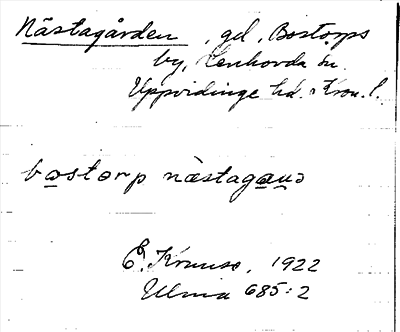 Nästagården, gd, Bostorps
by, Lenhovda sn.
Uppvidinge hd. Kron. l.
bostorp nästagaṉə
E. Kruuse, 1922
Ulma 685:2